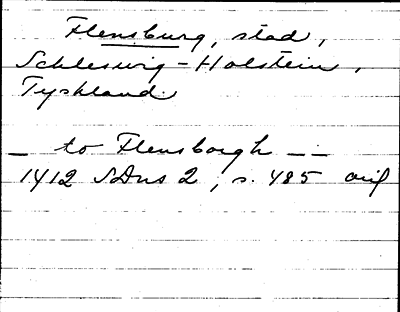 Flensburg, stad,
Schleswig-Holstein,
Tyskland.
_ to Flensborgh _ _
1412 SDns 2, s. 485 orig